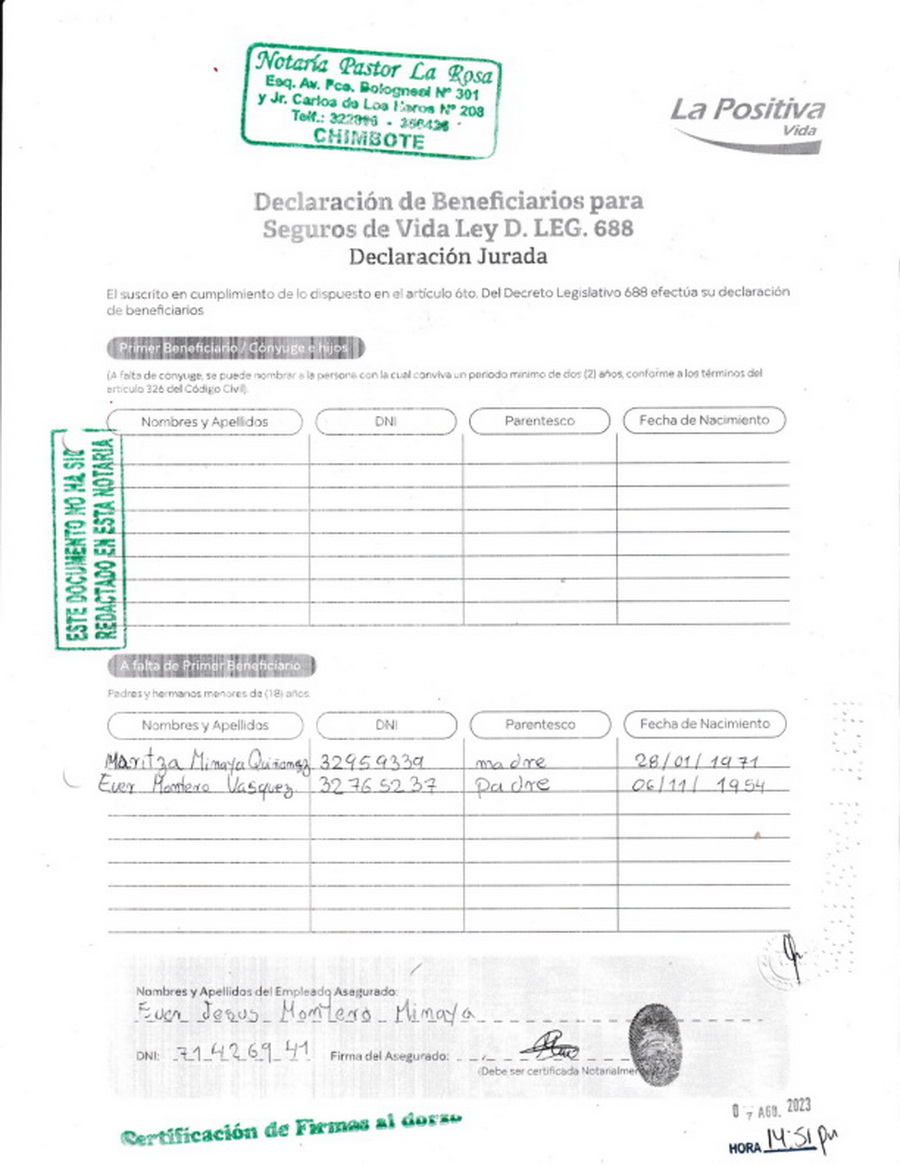 Notaría Pastor La Rosa
Esq. Av. Pco. Bolognesi Nº 301
y Jr. Carlos de Los Heros Nº 208
Telf.: - 
CHIMBOTE
La Positiva
Vida
Declaración de Beneficiarios para
Seguros de Vida Ley D. LEG. 688
Declaración Jurada
El suscrito en cumplimiento de lo dispuesto en el artículo 6to. Del Decreto Legislativo 688 efectúa su declaración
de beneficiarios
Primer Beneficiario / Cónyuge e hijos
(A falta de cónyuge, se puede nombrar a la persona con la cual conviva un periodo mínimo de dos (2) años, conforme a los términos del
artículo 326 del Código Civil).
Nombres y Apellidos DNI Parentesco Fecha de Nacimiento
ESTE DOCUMENTO NO HA SIDO
REDACTADO EN ESTA NOTARIA
A falta de Primer Beneficiario
Padres y hermanos menores de (18) años
Nombres y Apellidos DNI Parentesco Fecha de Nacimiento
Maritza Minaya 32959339 madre 28/01/1971
Ever Montero Vasquez 32765237 padre 06/11/1954
Nombres y Apellidos del Empleado Asegurado:
Ever Jesus Montero Minaya
DNI: 71426941 Firma del Asegurado:
(Debe ser certificada Notarialmen
Certificación de Firmas al dorso
07 AGO. 2023
HORA 14:51 pm